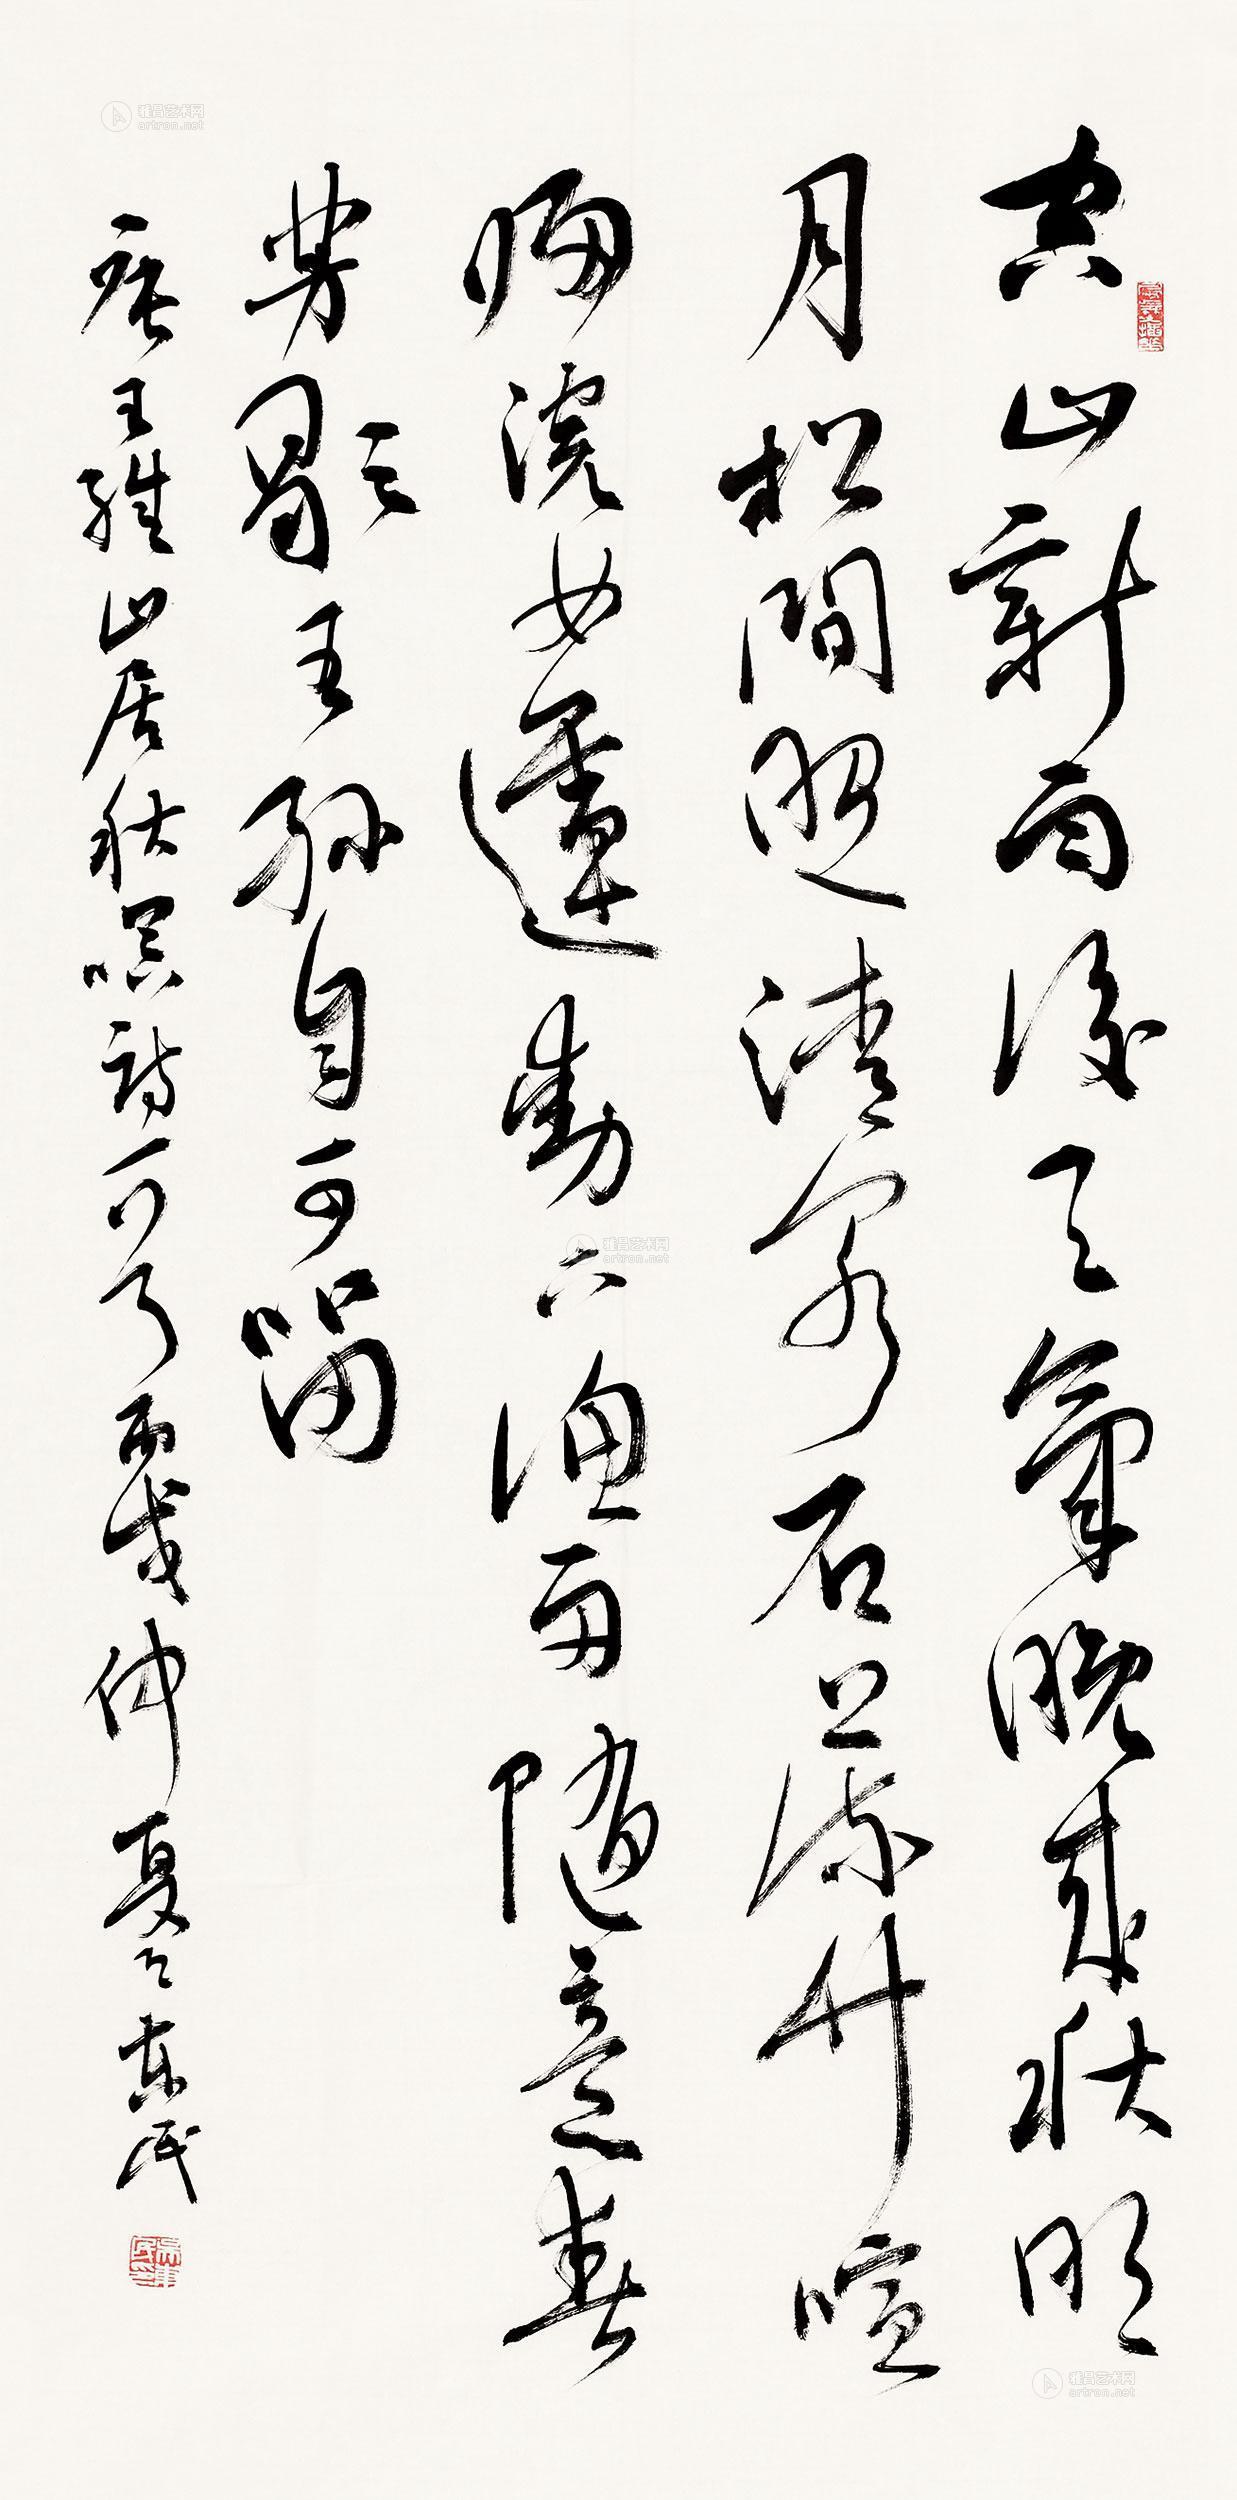 空山新雨後天氣晚來秋明
月松間照清泉石上流竹喧
歸浣女蓮動下漁舟隨意春
芳歇王孫自可留
唐王維山居秋暝詩一首丙戌仲夏吳東民
雅昌艺术网
artron.net
雅昌艺术网
artron.net
雅昌艺术网
artron.net